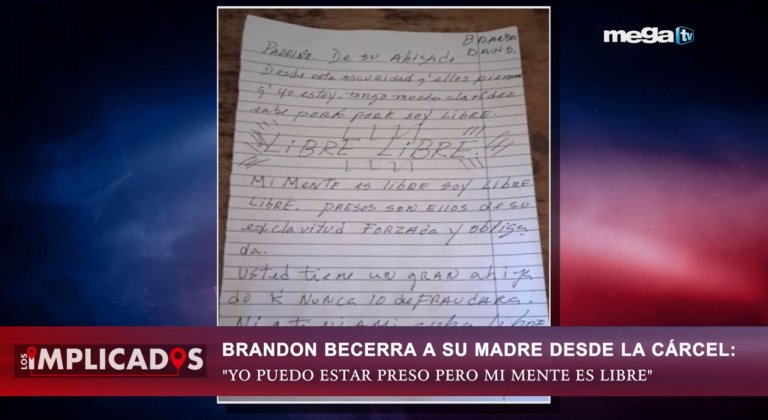 BRANDON
DAVID.
PADRINO. De su Ahijado
Desde esta oscuridad q' ellos piensan
q' yo estoy. tengo mucha claridez
sabe pork pork soy LIBRE.
LIBRE LIBRE.
Mi Mente es libre soy LIBRE
LIBRE. PRESOS SON Ellos de su
exclavitud FORZADA y obliga
da.
Usted tiene un GRAN ahija
do K' NUNCA lo deFRAUDARA.
mega tv
LOS IMPLICADOS
BRANDON BECERRA A SU MADRE DESDE LA CÁRCEL:
"YO PUEDO ESTAR PRESO PERO MI MENTE ES LIBRE"